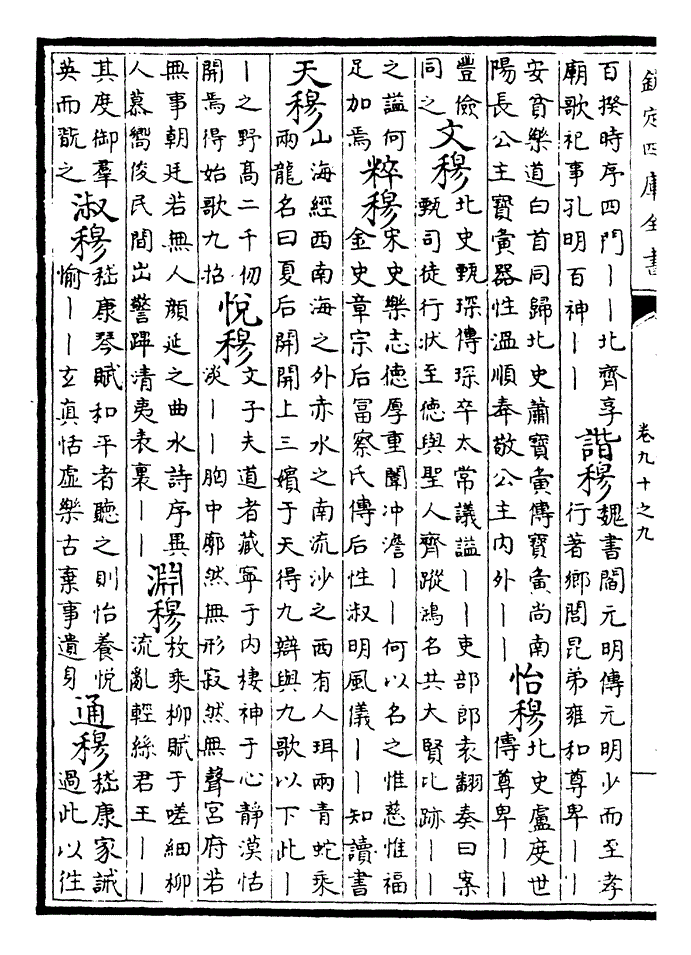 欽定四庫全書
卷九十之九
百揆時序四門丨丨北齊享
廟歌祀事孔明百神丨丨
諧穆
魏書閻元明傳元明少而至孝
行著鄉閭昆弟雍和尊卑丨丨
安貧樂道白首同歸北史蕭寶夤傳寶夤尚南
陽長公主寶夤器性溫順奉敬公主內外丨丨
怡穆
北史盧度世
傳尊卑丨丨
豐儉
同之
文穆
北史甄琛傳琛卒太常議謚丨丨吏部郎袁翻奏曰案
甄司徒行狀至德與聖人齊蹤鴻名共大賢比跡丨丨
之謚何
足加焉
粹穆
宋史樂志德厚重闈冲澹丨丨何以名之惟慈惟福
金史章宗后富察氏傳后性淑明風儀丨丨知讀書
天穆
山海經西南海之外赤水之南流沙之西有人珥兩青蛇乘
兩龍名曰夏后開開上三嬪于天得九辯與九歌以下此丨
丨之野高二千仞
開焉得始歌九招
悅穆
文子夫道者藏寧于內棲神于心靜漠恬
淡丨丨胸中廓然無形寂然無聲宮府若
無事朝廷若無人顏延之曲水詩序異
人慕嚮俊民間出警蹕清夷表裏丨丨
淵穆
枚乘柳賦于嗟細柳
流亂輕絲君王丨丨
其度御羣
英而翫之
淑穆
嵇康琴賦和平者聽之則怡養悅
愉丨丨玄真恬虛樂古棄事遺身
通穆
嵇康家誡
過此以往